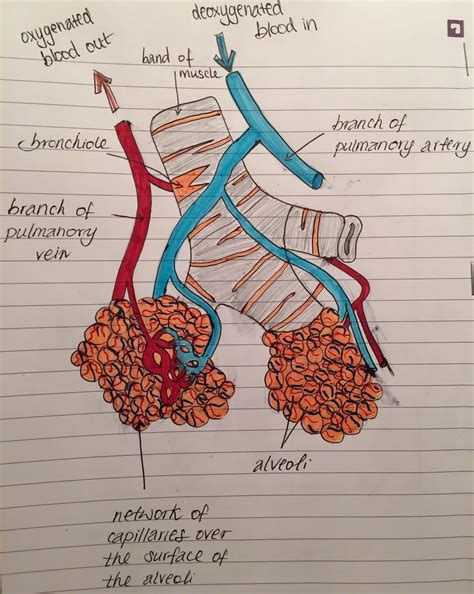 oxygenated
blood out
deoxygenated
blood in
band of
muscle
bronchiole
branch of
pulmanory artery
branch of
pulmanory
vein
alveoli
network of
capillaries over
the surface of
the alveoli